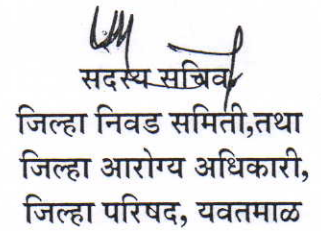 सदस्य सचिव
जिल्हा निवड समिती,तथा
जिल्हा आरोग्य अधिकारी,
जिल्हा परिषद, यवतमाळ